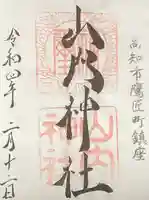 高知市鷹匠町鎮座
山内神社
令和四年
二月十二日